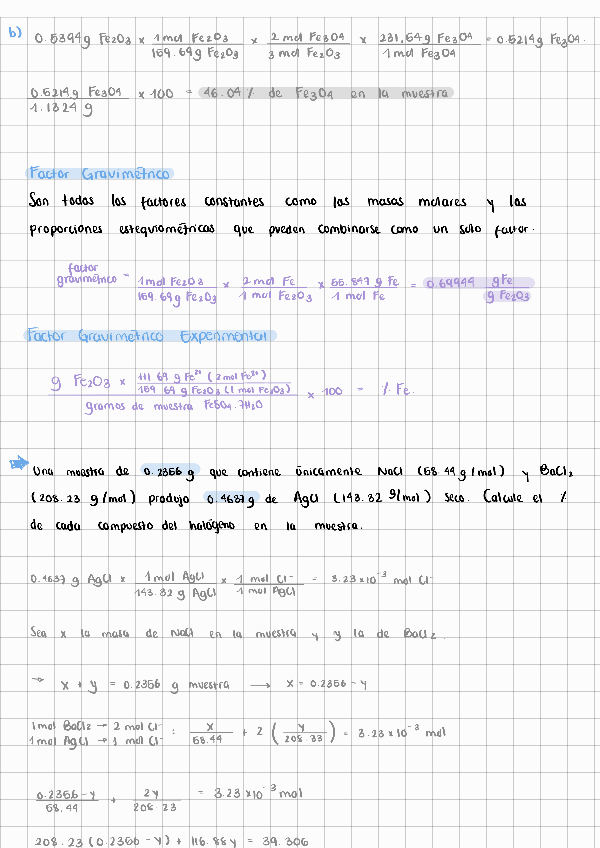 b) 0.5394g Fe2O3 x 1 mol Fe2O3 / 159.69g Fe2O3 x 2 mol Fe3O4 / 3 mol Fe2O3 x 231.54g Fe3O4 / 1 mol Fe3O4 = 0.5214g Fe3O4.
0.5214g Fe3O4 / 1.1324 g x 100 = 46.04 % de Fe3O4 en la muestra
Factor Gravimétrico
Son todos los factores constantes como las masas molares y las
proporciones estequiométricas que pueden combinarse como un solo factor.
factor gravimétrico = 1 mol Fe2O3 / 159.69g Fe2O3 x 2 mol Fe / 1 mol Fe2O3 x 55.847 g Fe / 1 mol Fe = 0.69944 g Fe / g Fe2O3
Factor Gravimétrico Experimental
g Fe2O3 x 111.69 g Fe2+ (2 mol Fe2+) / 159.69 g Fe2O3 (1 mol Fe2O3) / gramos de muestra FeSO4.7H2O x 100 = % Fe.
Una muestra de 0.2356 g que contiene únicamente NaCl (58.44 g/mol) y BaCl2
(208.23 g/mol) produjo 0.4637 g de AgCl (143.32 g/mol) seco. Calcule el %
de cada compuesto del halógeno en la muestra.
0.4637 g AgCl x 1 mol AgCl / 143.32 g AgCl x 1 mol Cl- / 1 mol AgCl = 3.23x10-3 mol Cl-
Sea x la masa de NaCl en la muestra y y la de BaCl2.
→ x + y = 0.2356 g muestra → x = 0.2356 - y
1 mol BaCl2 → 2 mol Cl- : x / 58.44 + 2 ( y / 208.33 ) = 3.23x10-3 mol
1 mol AgCl → 1 mol Cl-
0.2356 - y / 58.44 + 2y / 208.23 = 3.23x10-3 mol
208.23 (0.2356 - y) + 116.88y = 39.306